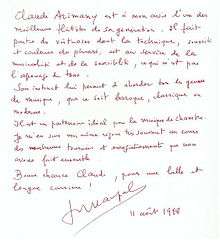 Claude Arimany est à mon avis l'un des
meilleurs flûtistes de sa génération. Il fait
partie de virtuoses dont la technique, sonorité
et couleurs de phrases, est au service de la
musicalité et de la sensibilité, ce qui n'est pas
l'apanage de tous.
Son instinct lui permet d'aborder tous les genres
de musique, que ce soit baroque, classique ou
moderne.
Il est un partenaire idéal pour la musique de chambre.
Je m'en suis moi même réjoui très souvent au cours
des nombreuses tournées et enregistrements que nous
avons fait ensemble.
Bonne chance Claude, pour une belle et
longue carrière !
11 août 1998